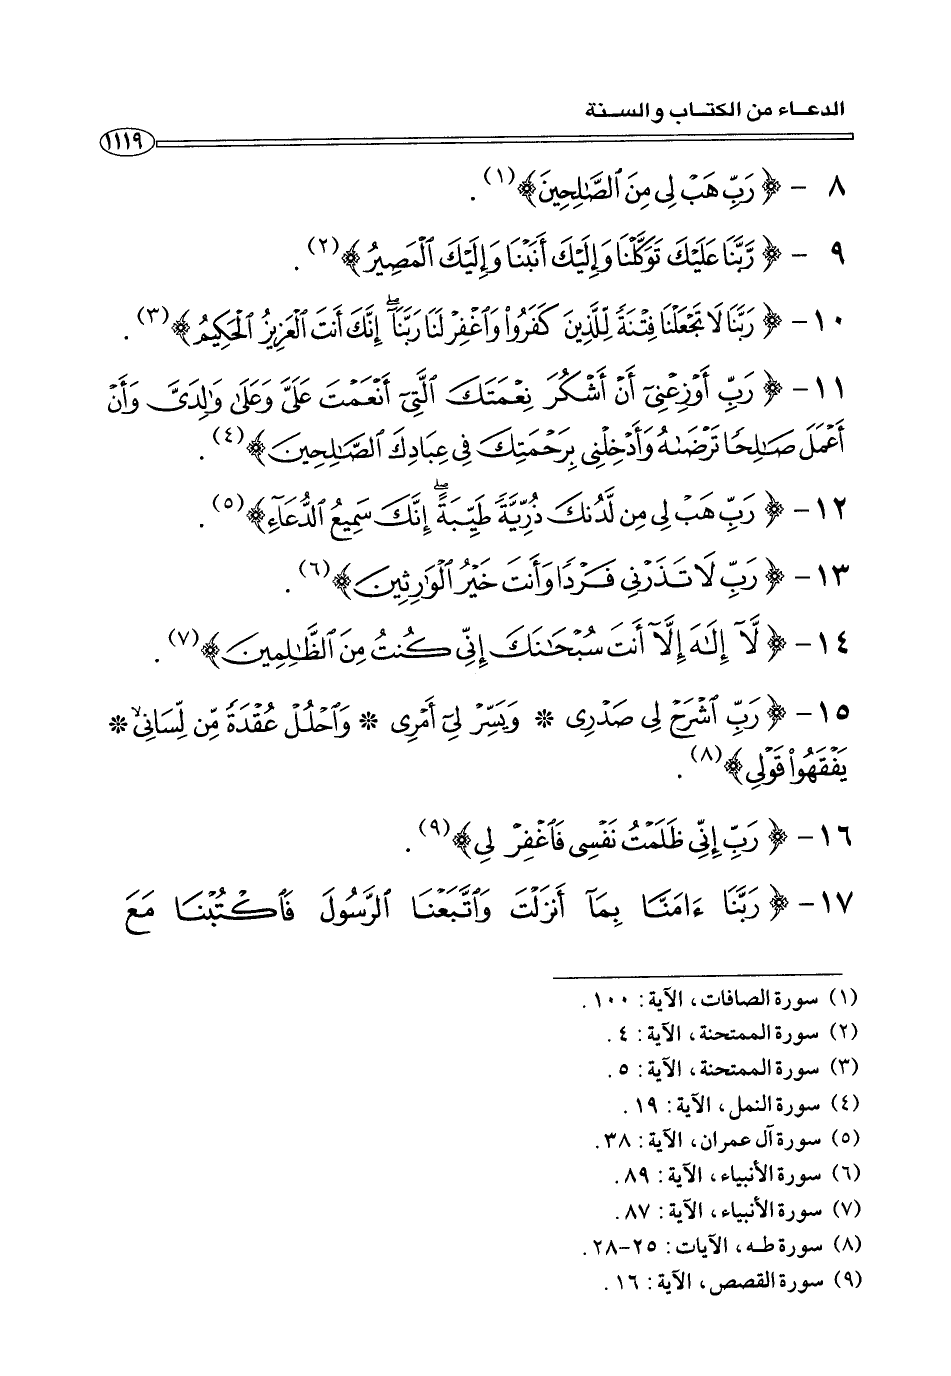 الدعاء من الكتاب والسنة
١١١٩
٨ - ﴿رَبِّ هَبْ لِي مِنَ ٱلصَّٰلِحِينَ﴾(١).
٩ - ﴿رَّبَّنَا عَلَيْكَ تَوَكَّلْنَا وَإِلَيْكَ أَنَبْنَا وَإِلَيْكَ ٱلْمَصِيرُ﴾(٢).
١٠- ﴿رَبَّنَا لَا تَجْعَلْنَا فِتْنَةً لِّلَّذِينَ كَفَرُوا۟ وَٱغْفِرْ لَنَا رَبَّنَآ ۖ إِنَّكَ أَنتَ ٱلْعَزِيزُ ٱلْحَكِيمُ﴾(٣).
١١- ﴿رَبِّ أَوْزِعْنِىٓ أَنْ أَشْكُرَ نِعْمَتَكَ ٱلَّتِىٓ أَنْعَمْتَ عَلَىَّ وَعَلَىٰ وَٰلِدَىَّ وَأَنْ
أَعْمَلَ صَٰلِحًا تَرْضَىٰهُ وَأَدْخِلْنِى بِرَحْمَتِكَ فِى عِبَادِكَ ٱلصَّٰلِحِينَ﴾(٤).
١٢- ﴿رَبِّ هَبْ لِى مِن لَّدُنكَ ذُرِّيَّةً طَيِّبَةً ۖ إِنَّكَ سَمِيعُ ٱلدُّعَآءِ﴾(٥).
١٣- ﴿رَبِّ لَا تَذَرْنِى فَرْدًا وَأَنتَ خَيْرُ ٱلْوَٰرِثِينَ﴾(٦).
١٤- ﴿لَّآ إِلَٰهَ إِلَّآ أَنتَ سُبْحَٰنَكَ إِنِّى كُنتُ مِنَ ٱلظَّٰلِمِينَ﴾(٧).
١٥- ﴿رَبِّ ٱشْرَحْ لِى صَدْرِى * وَيَسِّرْ لِىٓ أَمْرِى * وَٱحْلُلْ عُقْدَةً مِّن لِّسَانِى ۙ *
يَفْقَهُوا۟ قَوْلِى﴾(٨).
١٦- ﴿رَبِّ إِنِّى ظَلَمْتُ نَفْسِى فَٱغْفِرْ لِى﴾(٩).
١٧- ﴿رَبَّنَآ ءَامَنَّا بِمَآ أَنزَلْتَ وَٱتَّبَعْنَا ٱلرَّسُولَ فَٱكْتُبْنَا مَعَ
(١) سورة الصافات، الآية: ١٠٠.
(٢) سورة الممتحنة، الآية: ٤.
(٣) سورة الممتحنة، الآية: ٥.
(٤) سورة النمل، الآية: ١٩.
(٥) سورة آل عمران، الآية: ٣٨.
(٦) سورة الأنبياء، الآية: ٨٩.
(٧) سورة الأنبياء، الآية: ٨٧.
(٨) سورة طه، الآيات: ٢٥-٢٨.
(٩) سورة القصص، الآية: ١٦.